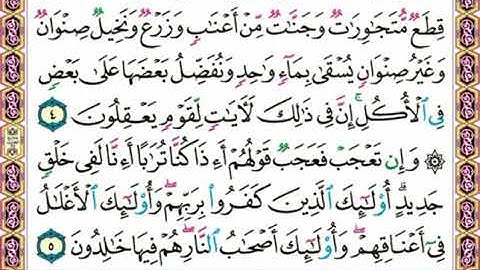 قِطَعٌ مُّتَجَاوِرَاتٌ وَجَنَّاتٌ مِّنْ أَعْنَابٍ وَزَرْعٌ وَنَخِيلٌ صِنْوَانٌ
وَغَيْرُ صِنْوَانٍ يُسْقَى بِمَاءٍ وَاحِدٍ وَنُفَضِّلُ بَعْضَهَا عَلَى بَعْضٍ
فِي الْأُكُلِ إِنَّ فِي ذَلِكَ لَآيَاتٍ لِّقَوْمٍ يَعْقِلُونَ ٤
۞ وَإِن تَعْجَبْ فَعَجَبٌ قَوْلُهُمْ أَءِذَا كُنَّا تُرَابًا أَءِنَّا لَفِي خَلْقٍ
جَدِيدٍ أُوْلَئِكَ الَّذِينَ كَفَرُوا بِرَبِّهِمْ وَأُوْلَئِكَ الْأَغْلَالُ
فِي أَعْنَاقِهِمْ وَأُوْلَئِكَ أَصْحَابُ النَّارِ هُمْ فِيهَا خَالِدُونَ ٥